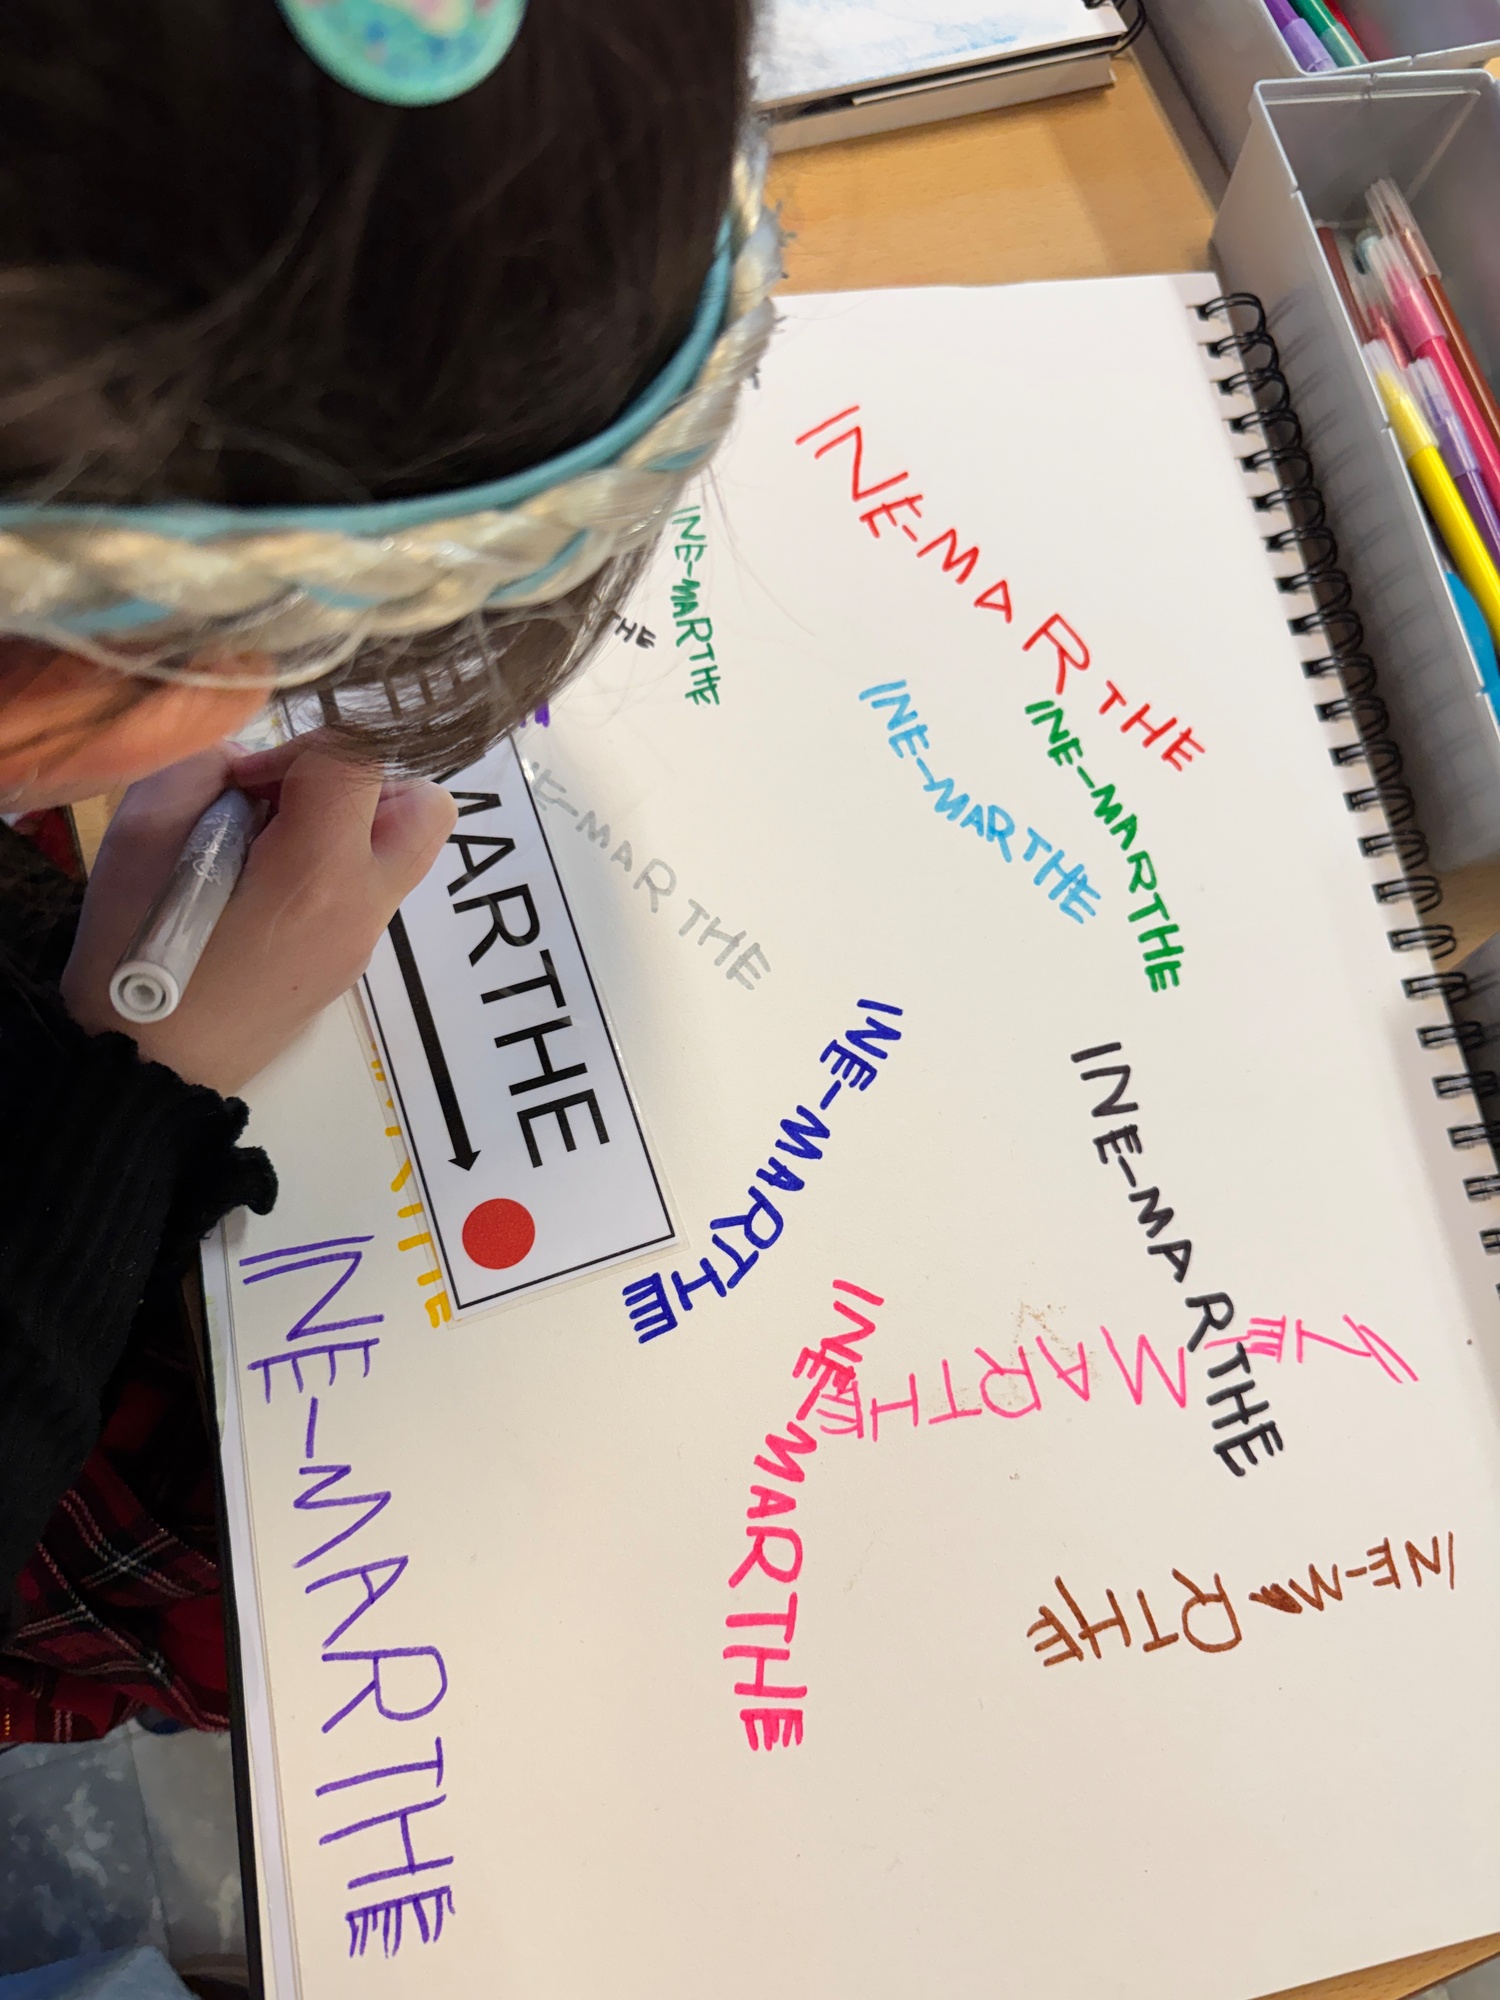 INE-MARTHE
INE-MARTHE
INE-MARTHE
INE-MARTHE
THE
E-MARTHE
MARTHE
INE-MARTHE
INE-MARTHE
INE MARTHE
INE-MARTHE
INE-MARTHE
INE-MARTHE